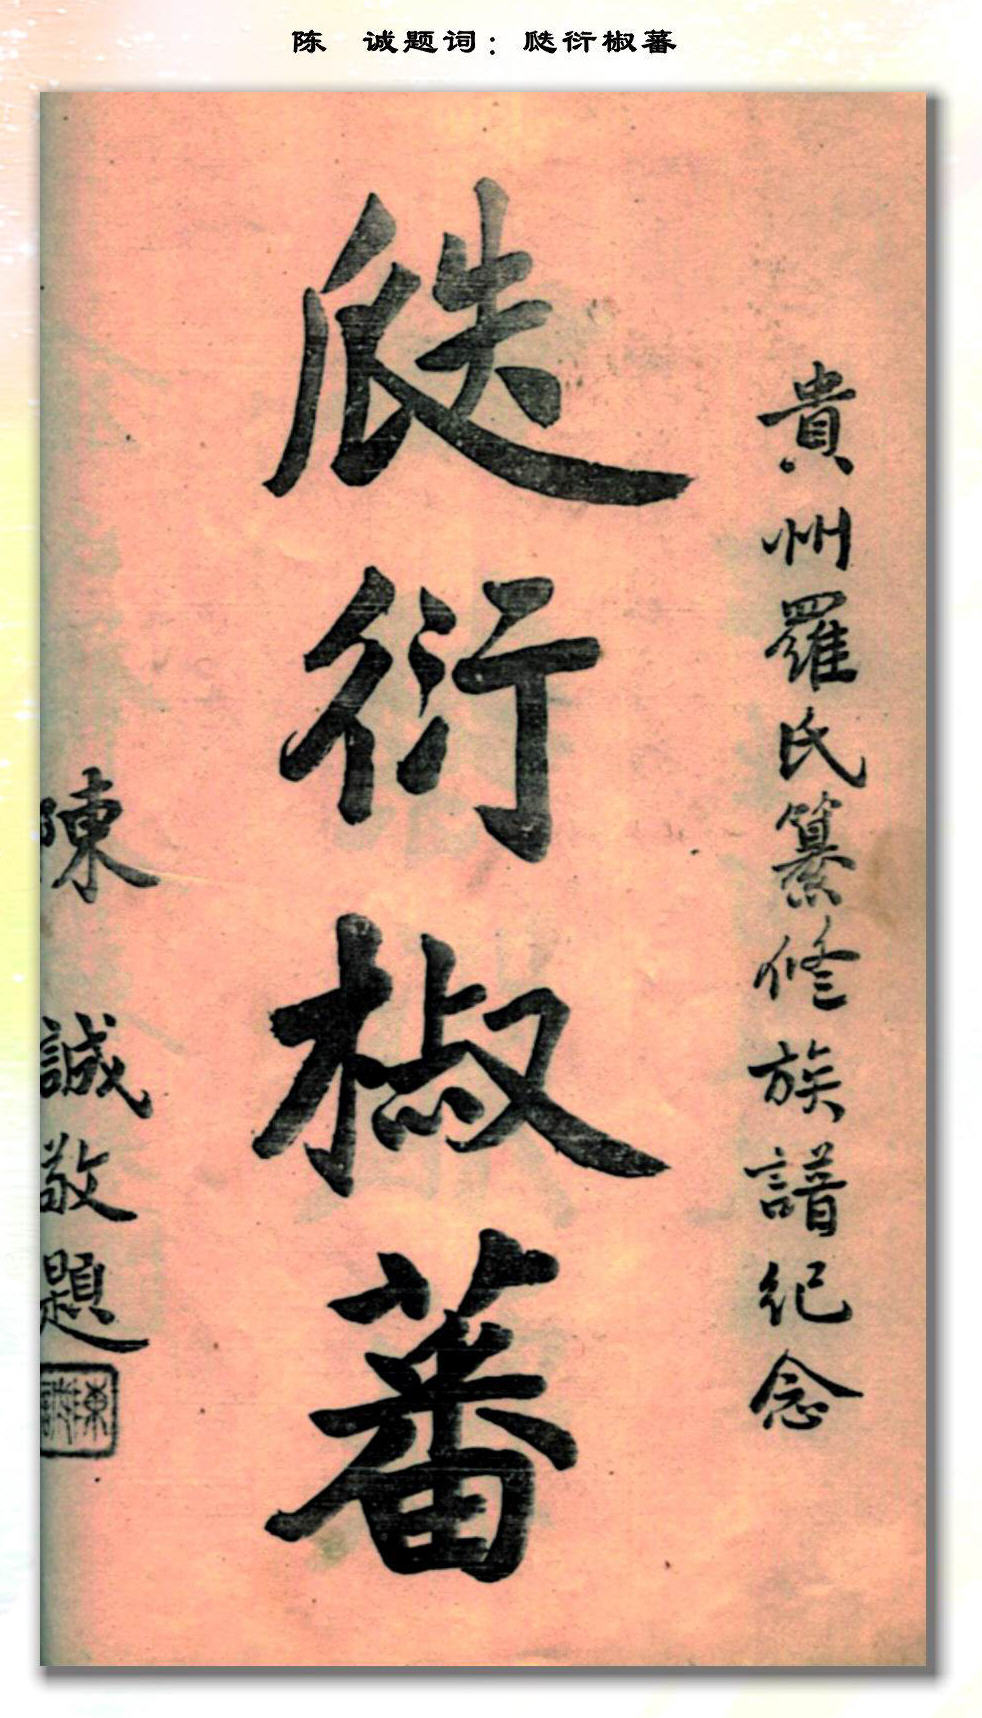 陈　诚题词：瓞衍椒蕃
貴州羅氏纂修族譜紀念
瓞衍椒蕃
陳誠敬題
陳誠